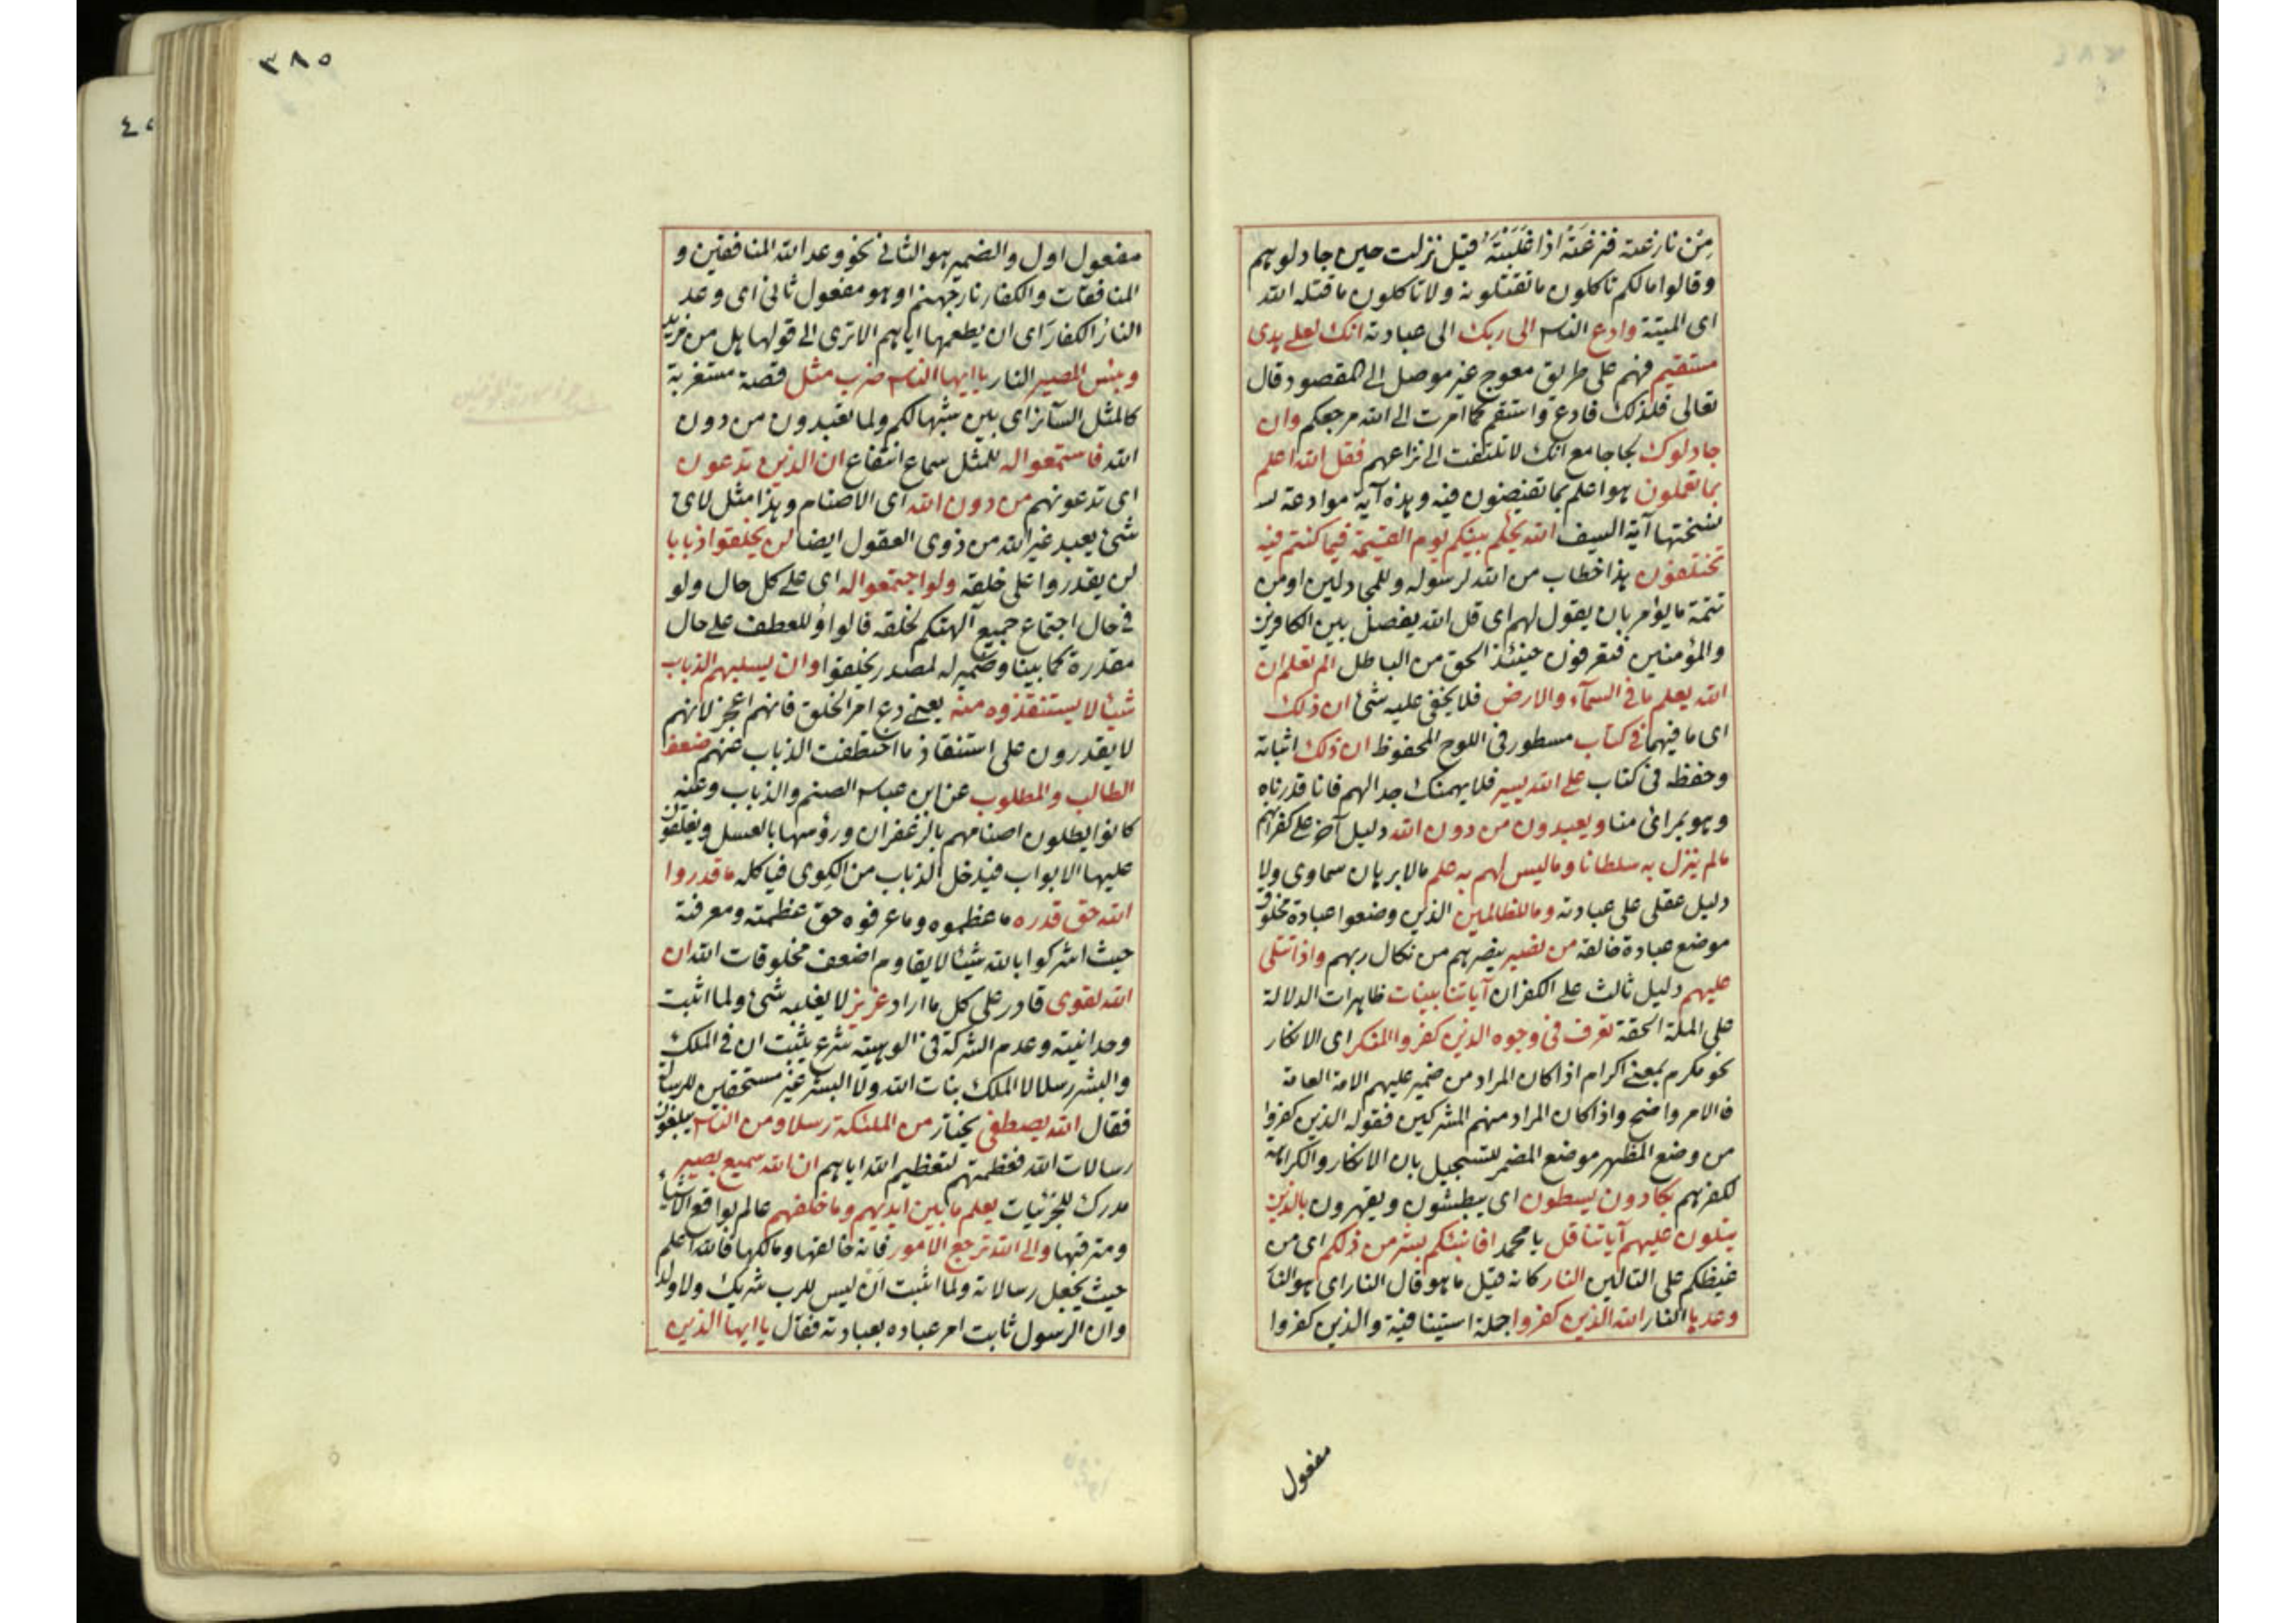 مِن نازعته فنزعته اذا غلبته قيل نزلت حين جادلوهم
وقالوا مالكم تاكلون ما تقتلونه ولا تاكلون ما قتله الله
اى الميتة وادع الناس الى ربك الى عبادته انك لعلى هدى
مستقيم فهم على طريق معوج غير موصل الى المقصود قال
تعالى فلذلك فادع واستقم كما امرت الى الله مرجعكم وان
جادلوك لجاجا مع انك لا تلتفت الى نزاعهم فقل الله اعلم
بما تعملون هو اعلم بما تفيضون فيه وهذه آية موادعة
نسختها آية السيف الله يحكم بينكم يوم القيمة فيما كنتم فيه
تختلفون هذا خطاب من الله لرسوله وللمجادلين او من
تتمة ما يؤمر بان يقول لهم اى قل الله يفصل بين الكافرين
والمؤمنين فتعرفون حينئذ الحق من الباطل الم تعلم ان
الله يعلم ما فى السمآء والارض فلا يخفى عليه شئ ان ذلك
اى ما فيهما فى كتاب مسطور فى اللوح المحفوظ ان ذلك اثباته
وحفظه فى كتاب على الله يسير فلا يهمنك جدالهم فانا قدرناه
وهو بمرائ منا ويعبدون من دون الله دليل آخر على كفرانهم
مالم ينزل به سلطانا وما ليس لهم به علم مالا برهان سماوى ولا
دليل عقلى على عبادته وما للظالمين الذين وضعوا عبادة مخلوق
موضع عبادة خالقه من نصير ينصرهم من نكال ربهم واذا تتلى
عليهم دليل ثالث على الكفران آياتنا بينات ظاهرات الدلالة
على الملة الحقة تعرف فى وجوه الذين كفروا المنكر اى الانكار
نحو مكرم بمعنى اكرام اذا كان المراد من ضمير عليهم الامة العامة
فالامر واضح واذا كان المراد منهم المشركين فقوله الذين كفروا
من وضع المظهر موضع المضمر للتسجيل بان الانكار والكراهة
لكفرهم يكادون يسطون اى يبطشون ويقهرون بالذين
يتلون عليهم آياتنا قل يا محمد افانبئكم بشر من ذلكم اى من
غيظكم على التالين النار كانه قيل ما هو قال النار اى هو النار
وعدها النار الله الذين كفروا جملة استينافية والذين كفروا
مفعول
٣٨٥
مفعول اول والضمير هو الثانى نحو وعد الله المنافقين و
المنافقات والكفار نار جهنم او هو مفعول ثانى اى وعد
النار الكفار اى ان يطعمها اياهم الا ترى الى قولها هل من مزيد
وبئس المصير النار يا ايها الناس ضرب مثل قصة مستغربة
كالمثل السآئر اى بين شبها لكم ولما تعبدون من دون
الله فاستمعوا له للمثل سماع انتفاع ان الذين تدعون
اى تدعونهم من دون الله اى الاصنام وهذا مثل لاى
شئ يعبد غير الله من ذوى العقول ايضا لن يخلقوا ذبابا
لن يقدروا على خلقه ولو اجتمعوا له اى على كل حال ولو
فى حال اجتماع جميع آلهتكم لخلقه قالوا او للعطف على حال
مقدرة كما بينا وضمير له لمصدر يخلقوا وان يسلبهم الذباب
شيئا لا يستنقذوه منه يعنى دع امر الخلق فانهم اعجز لانهم
لا يقدرون على استنقاذ ما اختطفت الذباب عنهم ضعف
الطالب والمطلوب عن ابن عباس الصنم والذباب وعنه
كانوا يطلون اصنامهم بالزعفران ورؤسها بالعسل ويغلقون
عليها الابواب فيدخل الذباب من الكوى فياكله ما قدروا
الله حق قدره ما عظموه وما عرفوه حق عظمته ومعرفته
حيث اشركوا بالله شيئا لا يقاوم اضعف مخلوقات الله ان
الله لقوى قادر على كل ما اراد عزيز لا يغلبه شئ ولما اثبت
وحدانيته وعدم الشركة فى الوهيته شرع يثبت ان فى الملك
والبشر رسلا لا الملك بنات الله ولا البشر غير مستحقين للرسالة
فقال الله يصطفى يختار من الملئكة رسلا ومن الناس يبلغون
رسالات الله فعظمتهم لتعظيم الله اياهم ان الله سميع بصير
مدرك للجزئيات يعلم ما بين ايديهم وما خلفهم عالم بواقع الاشياء
ومترقبها والى الله ترجع الامور فانه خالقها ومالكها فالله اعلم
حيث يجعل رسالاته ولما اثبت ان ليس للرب شريك ولا ولد
وان الرسول ثابت امر عباده بعبادته فقال يا ايها الذين